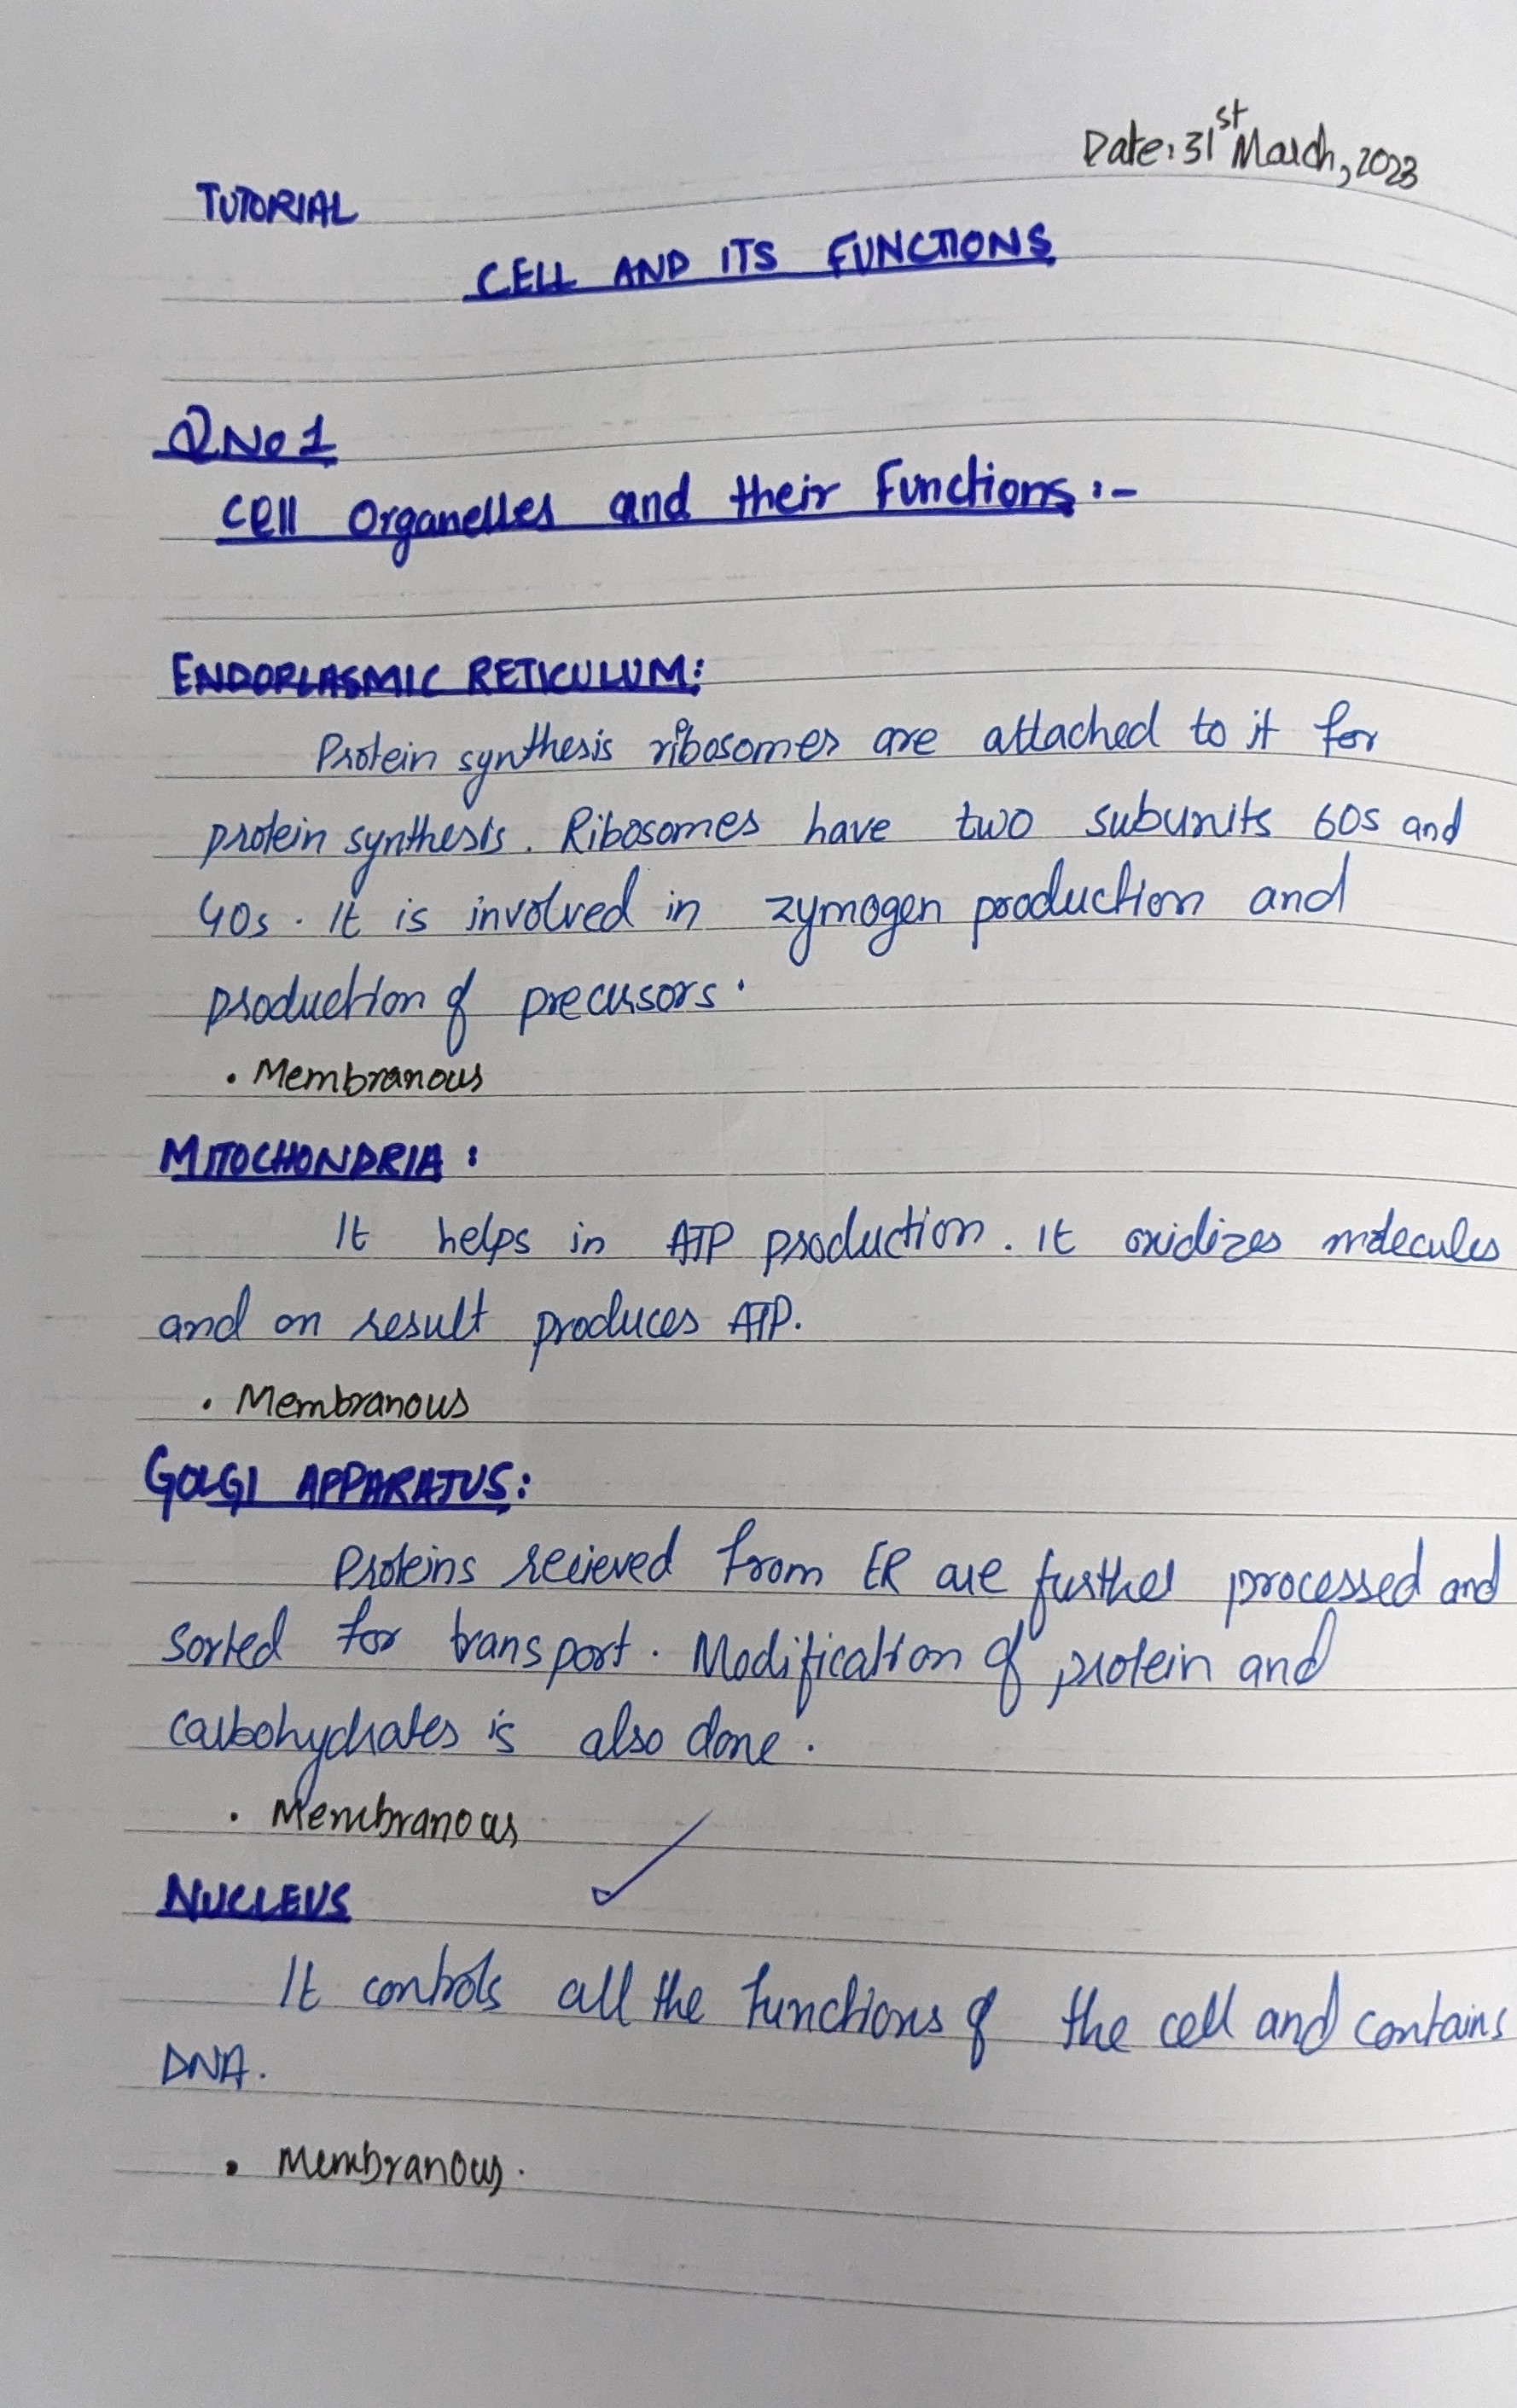 Date: 31st March, 2023
TUTORIAL
CELL AND ITS FUNCTIONS
QNo1
Cell Organelles and their Functions:-
ENDOPLASMIC RETICULUM:
Protein synthesis ribosomes are attached to it for
protein synthesis. Ribosomes have two subunits 60s and
40s. It is involved in zymogen production and
production of precursors.
• Membranous
MITOCHONDRIA:
It helps in ATP production. It oxidizes molecules
and on result produces ATP.
• Membranous
GOLGI APPARATUS:
Proteins recieved from ER are further processed and
sorted for transport. Modification of protein and
carbohydrates is also done.
• Membranous
NUCLEUS
It controls all the functions of the cell and contains
DNA.
• Membranous.